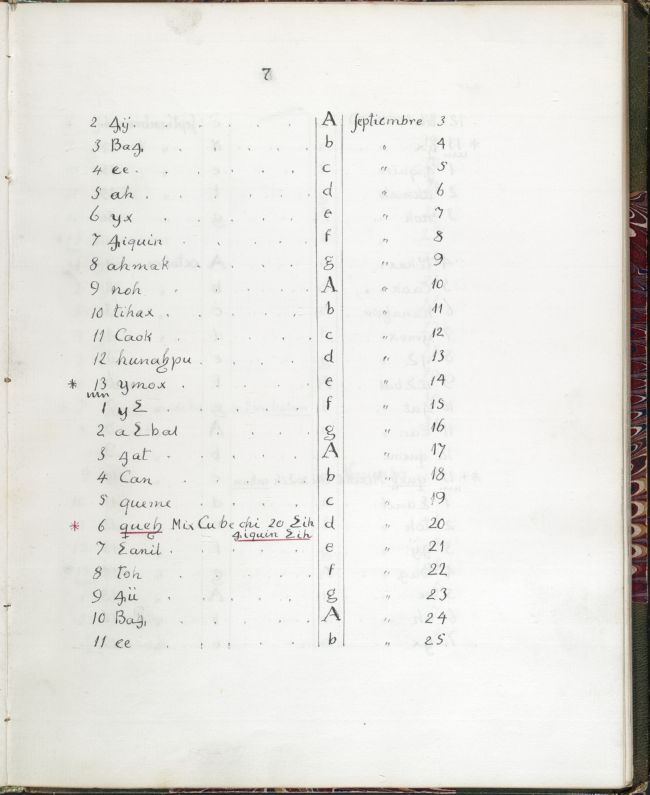 7
2 ꜭij . . . . . A Septiembre 3
3 Baꜭ, . . . . . b „ 4
4 ee . . . . . c „ 5
5 ah . . . . . d „ 6
6 yx . . . . . e „ 7
7 ꜭiquin . . . . f „ 8
8 ahmak . . . . g „ 9
9 noh . . . . . A „ 10
10 tihax . . . . b „ 11
11 Caok . . . . c „ 12
12 hunahpu . . . . d „ 13
* 13 ymox . . . . e „ 14
1 yꜪ . . . . . f „ 15
2 aꜪbal . . . . g „ 16
3 ꜭat . . . . . A „ 17
4 Can . . . . . b „ 18
5 queme . . . . c „ 19
* 6 queh Mix Cu be chi 20 Ɛih d „ 20
ꜭiquin Ɛih
7 Ɛanil . . . . e „ 21
8 toh . . . . . f „ 22
9 ꜭii . . . . . g „ 23
10 Baꜭ, . . . . . A „ 24
11 ee . . . . . b „ 25